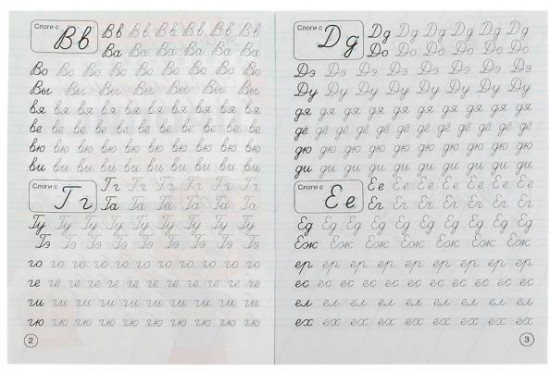 Слоги с Вв Вв Вв Вв Вв Вв Вв Вв
Ва Ва Ва Ва Ва Ва
Во Во Во Во Во Во Во Во
Вы Вы Вы Вы Вы Вы Вы
вя вя вя вя вя вя вя вя вя
ве ве ве ве ве ве ве ве ве
вю вю вю вю вю вю вю вю
ви ви ви ви ви ви ви ви ви
Слоги с Гг Гг Гг Гг Гг Гг Гг
Га Га Га Га Га Га
Гу Гу Гу Гу Гу Гу Гу Гу
Гэ Гэ Гэ Гэ Гэ Гэ Гэ Гэ
го го го го го го го го го го
ге ге ге ге ге ге ге ге ге ге
ги ги ги ги ги ги ги ги ги
гю гю гю гю гю гю гю гю
2
Слоги с Дд Дд Дд Дд Дд Дд Дд
До До До До До До
Дэ Дэ Дэ Дэ Дэ Дэ Дэ Дэ
Ду Ду Ду Ду Ду Ду Ду Ду
дя дя дя дя дя дя дя дя дя
дё дё дё дё дё дё дё дё дё
дю дю дю дю дю дю дю дю
ди ди ди ди ди ди ди ди ди
Слоги с Ее Ее Ее Ее Ее Ее Ее
Ег Ег Ег Ег Ег Ег
Ед Ед Ед Ед Ед Ед Ед Ед
Еж Еж Еж Еж Еж Еж Еж
ер ер ер ер ер ер ер ер ер
ес ес ес ес ес ес ес ес ес ес
ел ел ел ел ел ел ел ел ел
ех ех ех ех ех ех ех ех ех
3